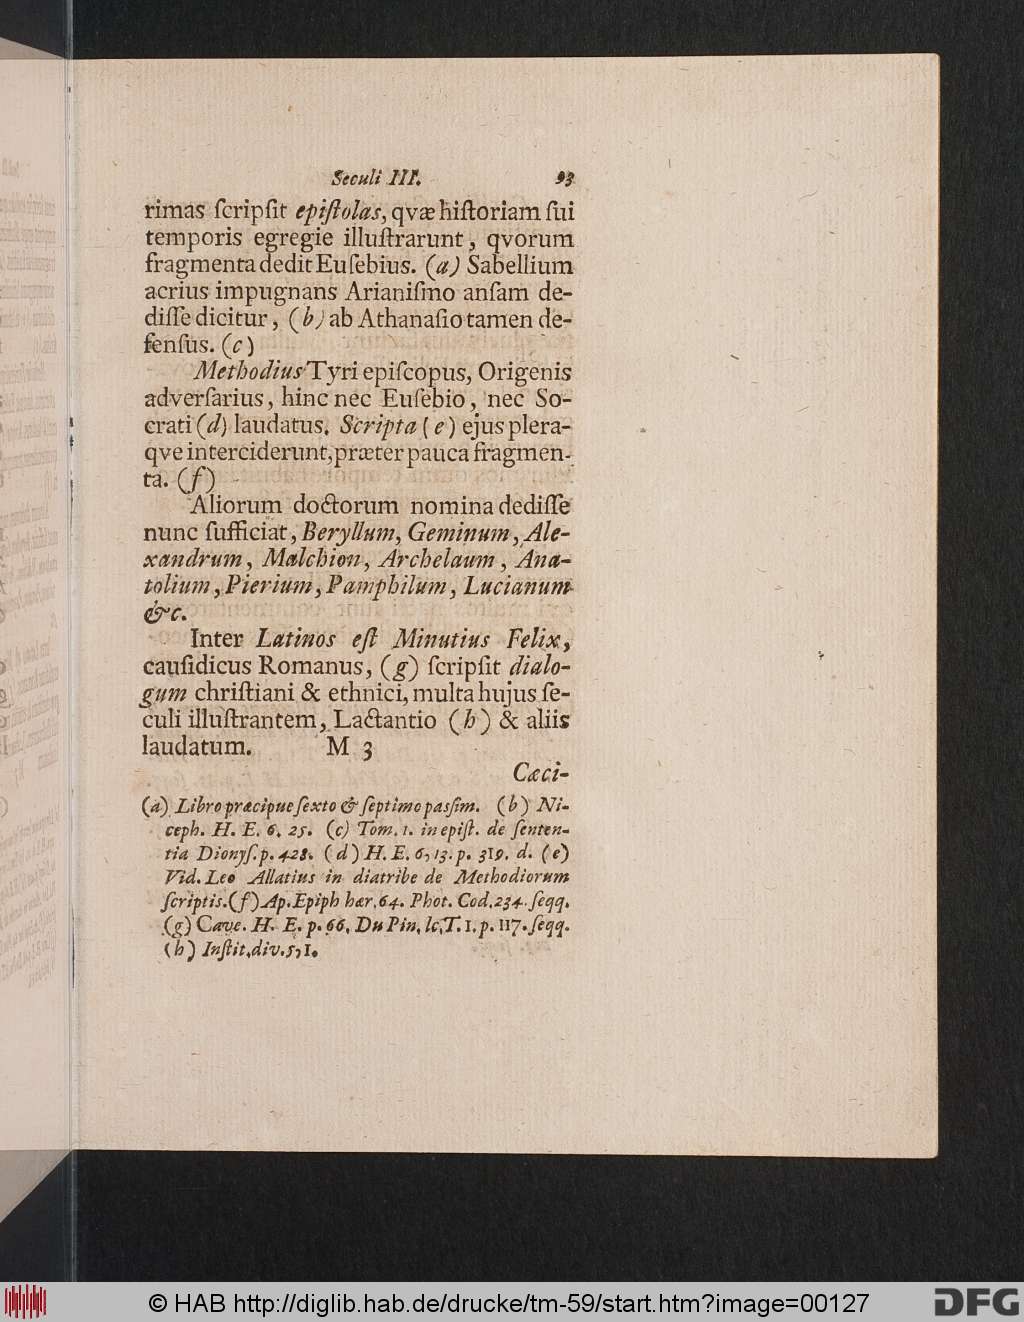 Seculi III. 93
rimas ſcripſit epiſtolas, qvæ hiſtoriam ſui
temporis egregie illuſtrarunt, qvorum
fragmenta dedit Euſebius. (a) Sabellium
acrius impugnans Arianiſmo anſam de-
diſſe dicitur, (b) ab Athanaſio tamen de-
fenſus. (c)
Methodius Tyri epiſcopus, Origenis
adverſarius, hinc nec Euſebio, nec So-
crati (d) laudatus. Scripta (e) ejus plera-
qve interciderunt, præter pauca fragmen-
ta. (f)
Aliorum doctorum nomina dediſſe
nunc ſufficiat, Beryllum, Geminum, Ale-
xandrum, Malchion, Archelaum, Ana-
tolium, Pierium, Pamphilum, Lucianum
&c.
Inter Latinos eſt Minutius Felix,
cauſidicus Romanus, (g) ſcripſit dialo-
gum chriſtiani & ethnici, multa hujus ſe-
culi illuſtrantem, Lactantio (h) & aliis
laudatum. M 3
Cæci-
(a) Libro præcipue ſexto & ſeptimo paſsim. (b) Ni-
ceph. H. E. 6, 25. (c) Tom. 1. in epiſt. de ſenten-
tia Dionyſ. p. 428. (d) H. E. 6, 13. p. 319. d. (e)
Vid. Leo Allatius in diatribe de Methodiorum
ſcriptis. (f) Ap. Epiph hær. 64. Phot. Cod. 234. ſeqq.
(g) Cave. H. E. p. 66. Du Pin. lc. T. 1. p. 117. ſeqq.
(h) Inſtit. div. 5, 1.
© HAB http://diglib.hab.de/drucke/tm-59/start.htm?image=00127
DFG